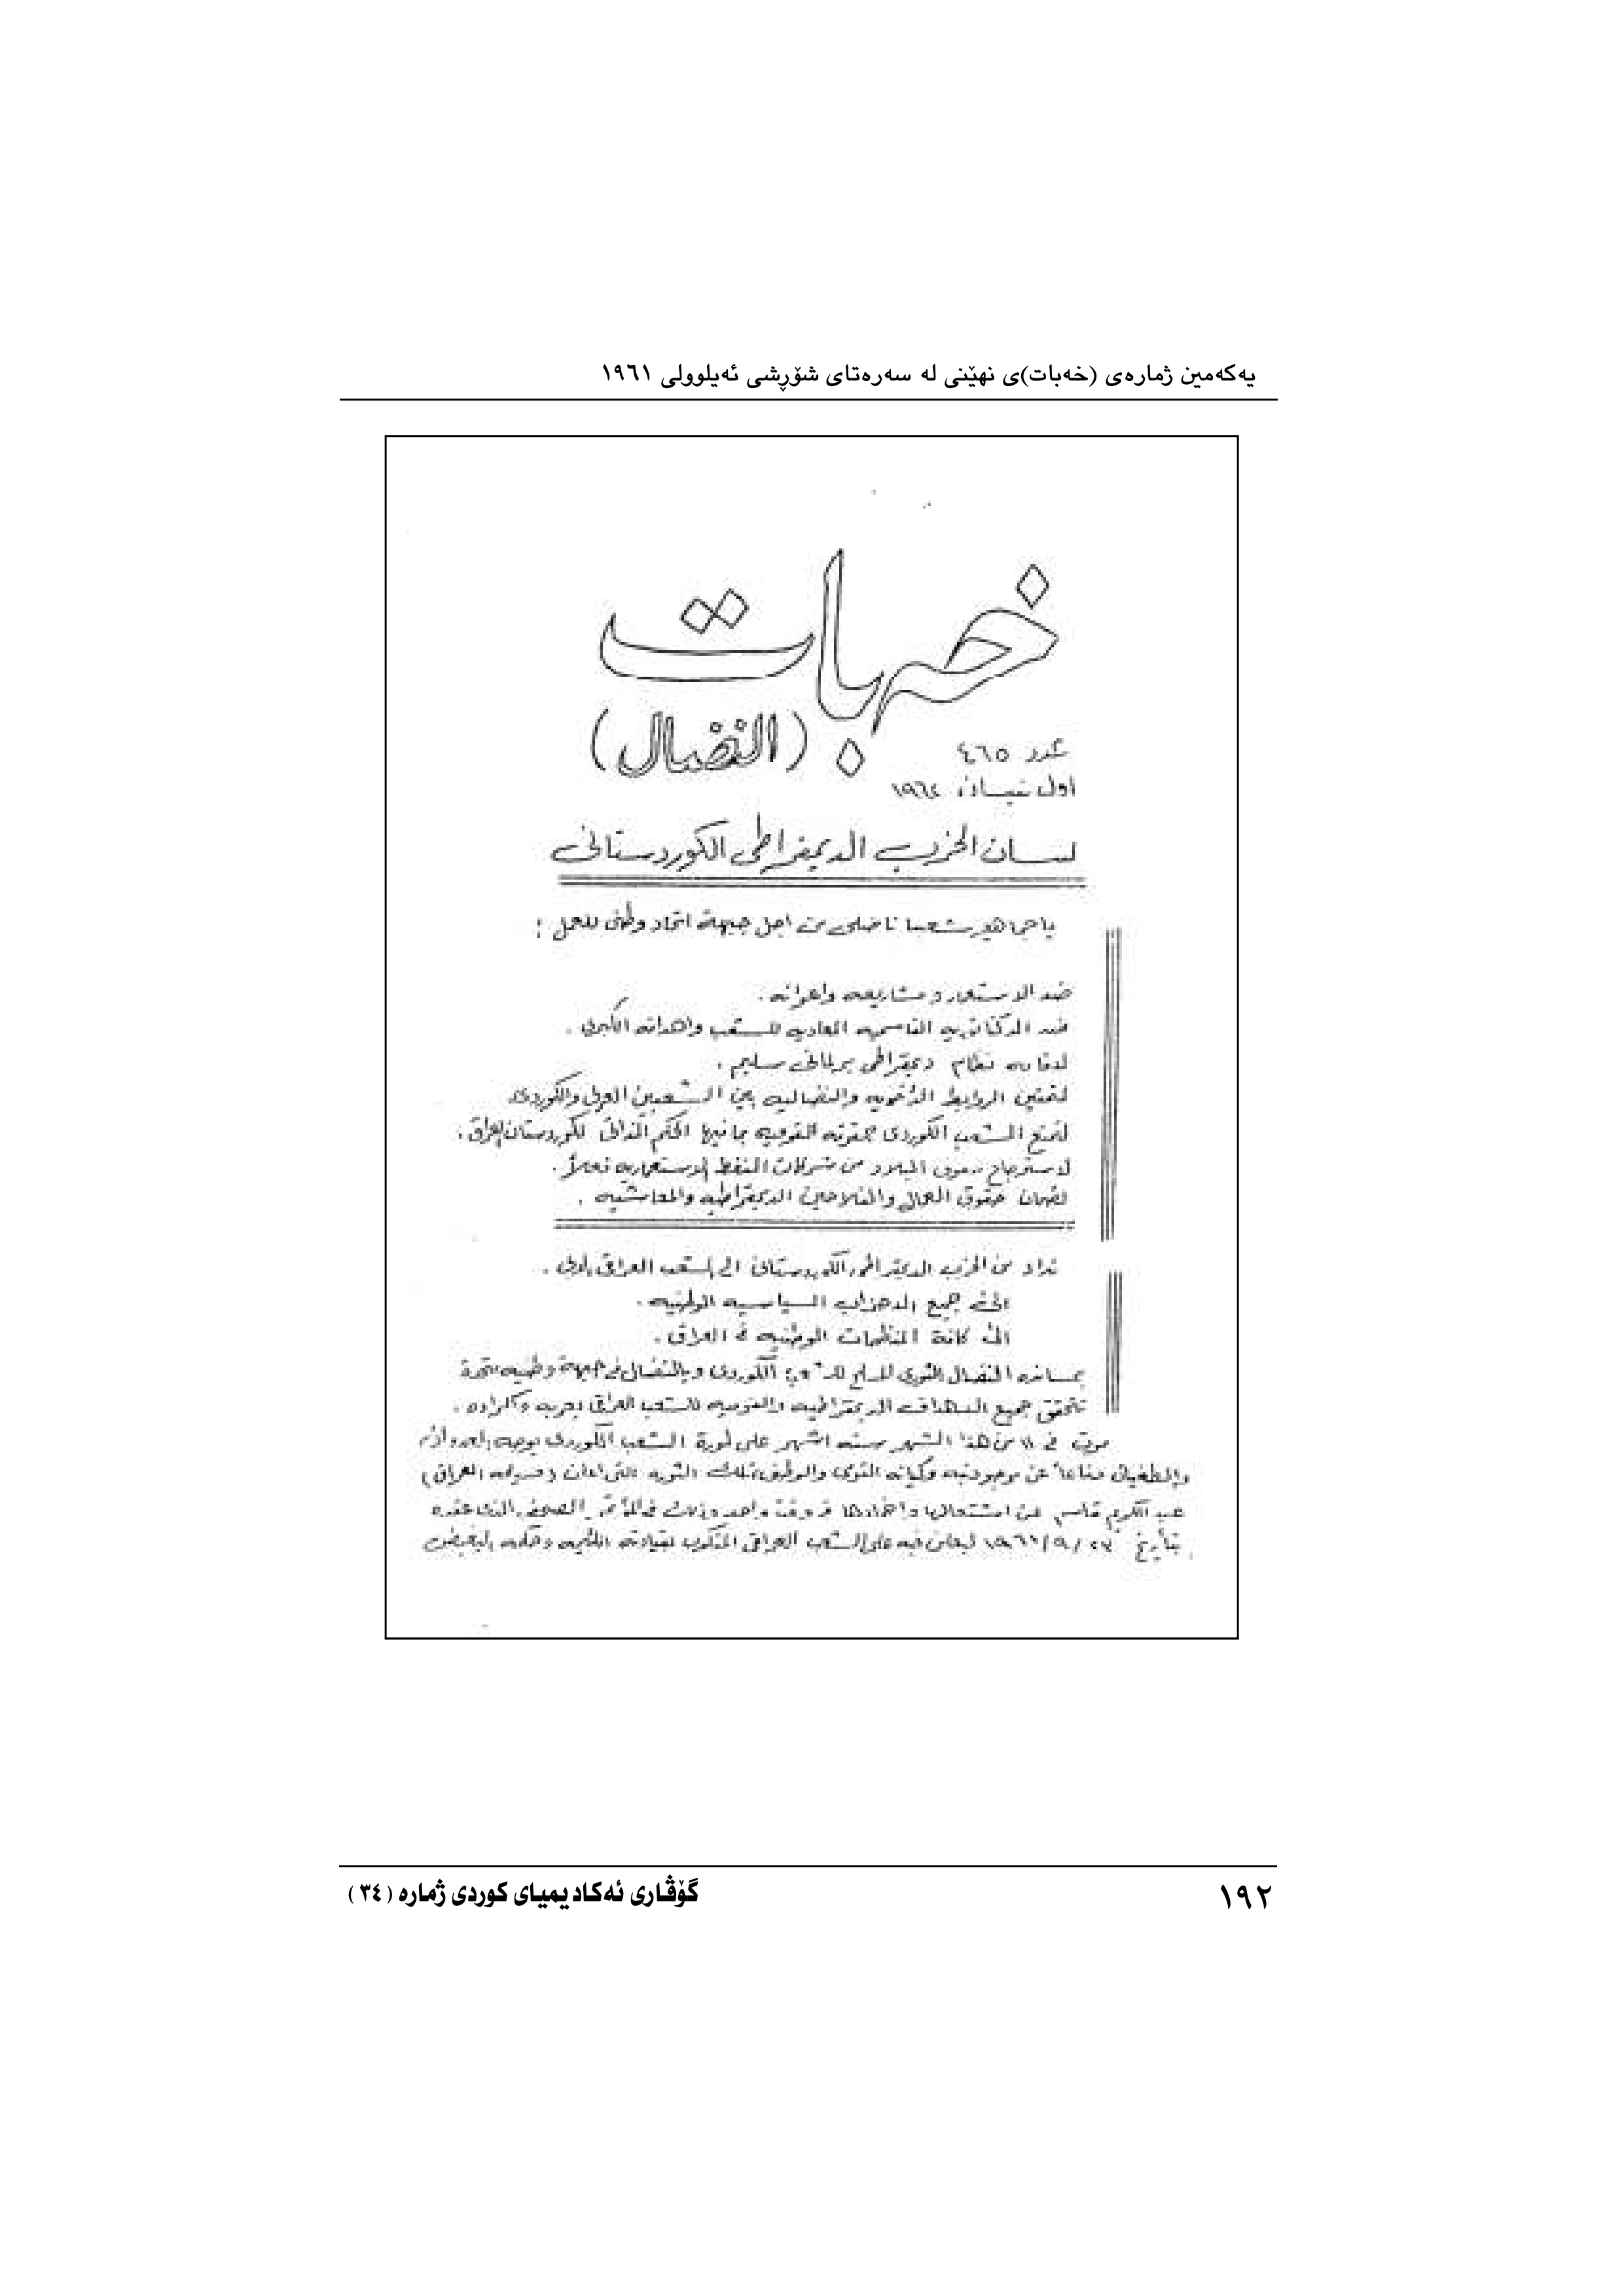 یەکەمین ژمارەی (خەبات)ی نهێنی لە سەرەتای شۆڕشی ئەیلوولی ١٩٦١
خەبات
(النضال)
عدد ٤٦٥
اول نيسان ١٩٦٢
لسان الحزب الديمقراطي الكوردستاني
يا جماهير شعبنا ناضلي من اجل جبهة اتحاد وطني للعمل :
ضد الاستعمار ومشاريعه واعوانه .
ضد الدكتاتورية القاسمية المعادية للشعب واهدافه الكبرى .
لاقامة نظام ديمقراطي برلماني سليم .
لتمتين الروابط الأخوية والنضالية بين الشعبين العربي والكوردي
لتمتع الشعب الكوردي بحقوقه القومية بما فيها الحكم الذاتي لكوردستان العراق .
لاسترجاع حقوق البلاد من شركات النفط الاستعمارية فعلاً .
لضمان حقوق العمال والفلاحين الديمقراطية والمعاشية .
نداء من الحزب الديمقراطي الكوردستاني الى الشعب العراقي الابي .
الى جميع الاحزاب السياسية الوطنية .
الى كافة المنظمات الوطنية في العراق .
بمساندة النضال الثوري المسلح للشعب الكوردي وبالنضال في جبهة وطنية متحدة
تتحقق جميع الاهداف الديمقراطية والقومية للشعب العراقي بعربه وأكراده .
مرت في ١١ من هذا الشهر ستة اشهر على ثورة الشعب الكوردي بوجه العدوان
والطغيان دفاعاً عن موجوديته وكيانه القومي والوطني تلك الثورة التي اعلن
عبد الكريم قاسم عن اشتعالها واخمادها في وقت واحد وذلك في المؤتمر الصحفي الذي عقده
بتأريخ ٢٧ /٩/ ١٩٦١ ليعلن فيه على الشعب العراقي المنكوب بقيادته اللئيمة وحكمه البغيض
١٩٢
گۆڤاری ئەکادیمیای کوردی ژمارە (٣٤)